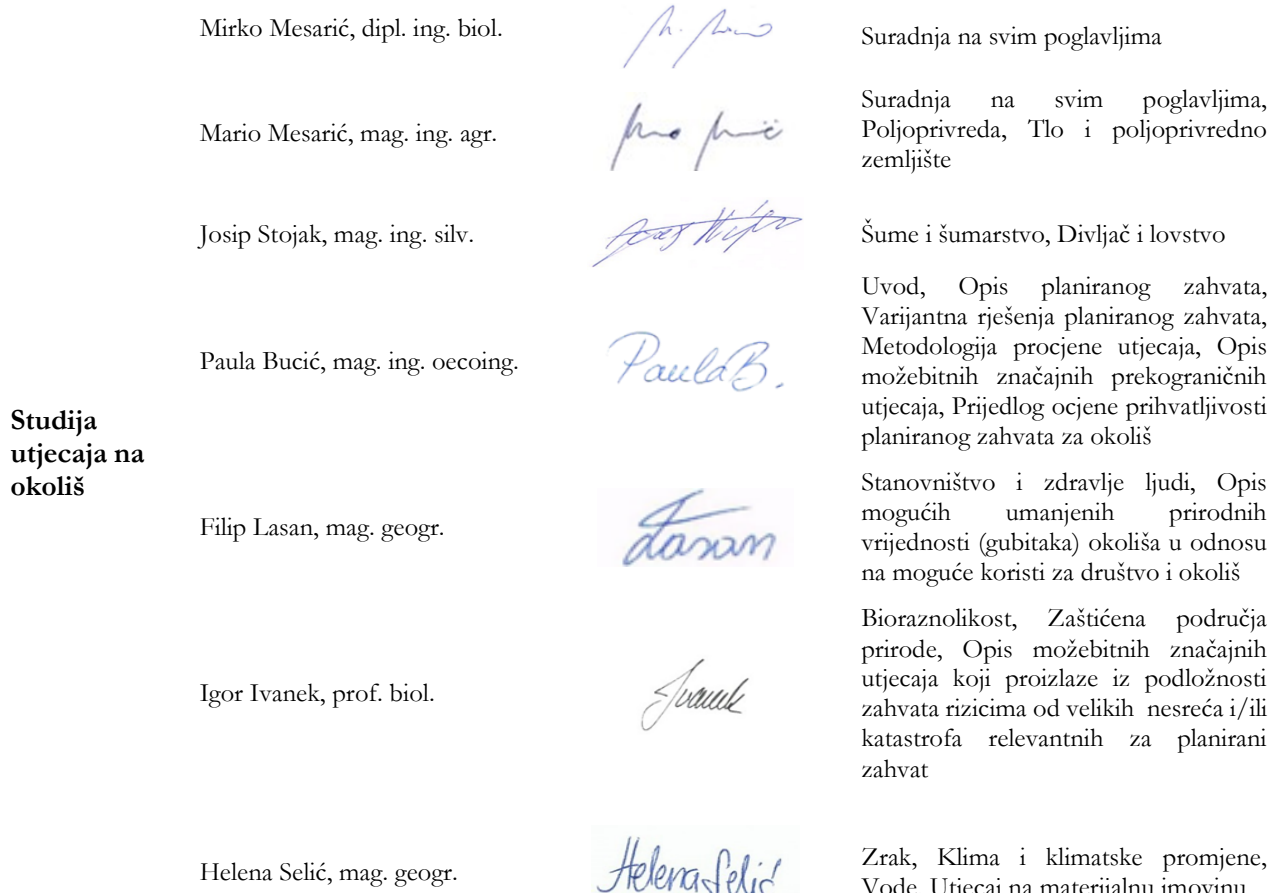 Mirko Mesarić, dipl. ing. biol.
Suradnja na svim poglavljima
Mario Mesarić, mag. ing. agr.
Suradnja na svim poglavljima,
Poljoprivreda, Tlo i poljoprivredno
zemljište
Josip Stojak, mag. ing. silv.
Šume i šumarstvo, Divljač i lovstvo
Studija
utjecaja na
okoliš
Paula Bucić, mag. ing. oecoing.
PaulaB.
Uvod, Opis planiranog zahvata,
Varijantna rješenja planiranog zahvata,
Metodologija procjene utjecaja, Opis
možebitnih značajnih prekograničnih
utjecaja, Prijedlog ocjene prihvatljivosti
planiranog zahvata za okoliš
Filip Lasan, mag. geogr.
Lasan
Stanovništvo i zdravlje ljudi, Opis
mogućih umanjenih prirodnih
vrijednosti (gubitaka) okoliša u odnosu
na moguće koristi za društvo i okoliš
Igor Ivanek, prof. biol.
Ivanek
Bioraznolikost, Zaštićena područja
prirode, Opis možebitnih značajnih
utjecaja koji proizlaze iz podložnosti
zahvata rizicima od velikih nesreća i/ili
katastrofa relevantnih za planirani
zahvat
Helena Selić, mag. geogr.
Helena Selić
Zrak, Klima i klimatske promjene,
Vode, Utjecaj na materijalnu imovinu